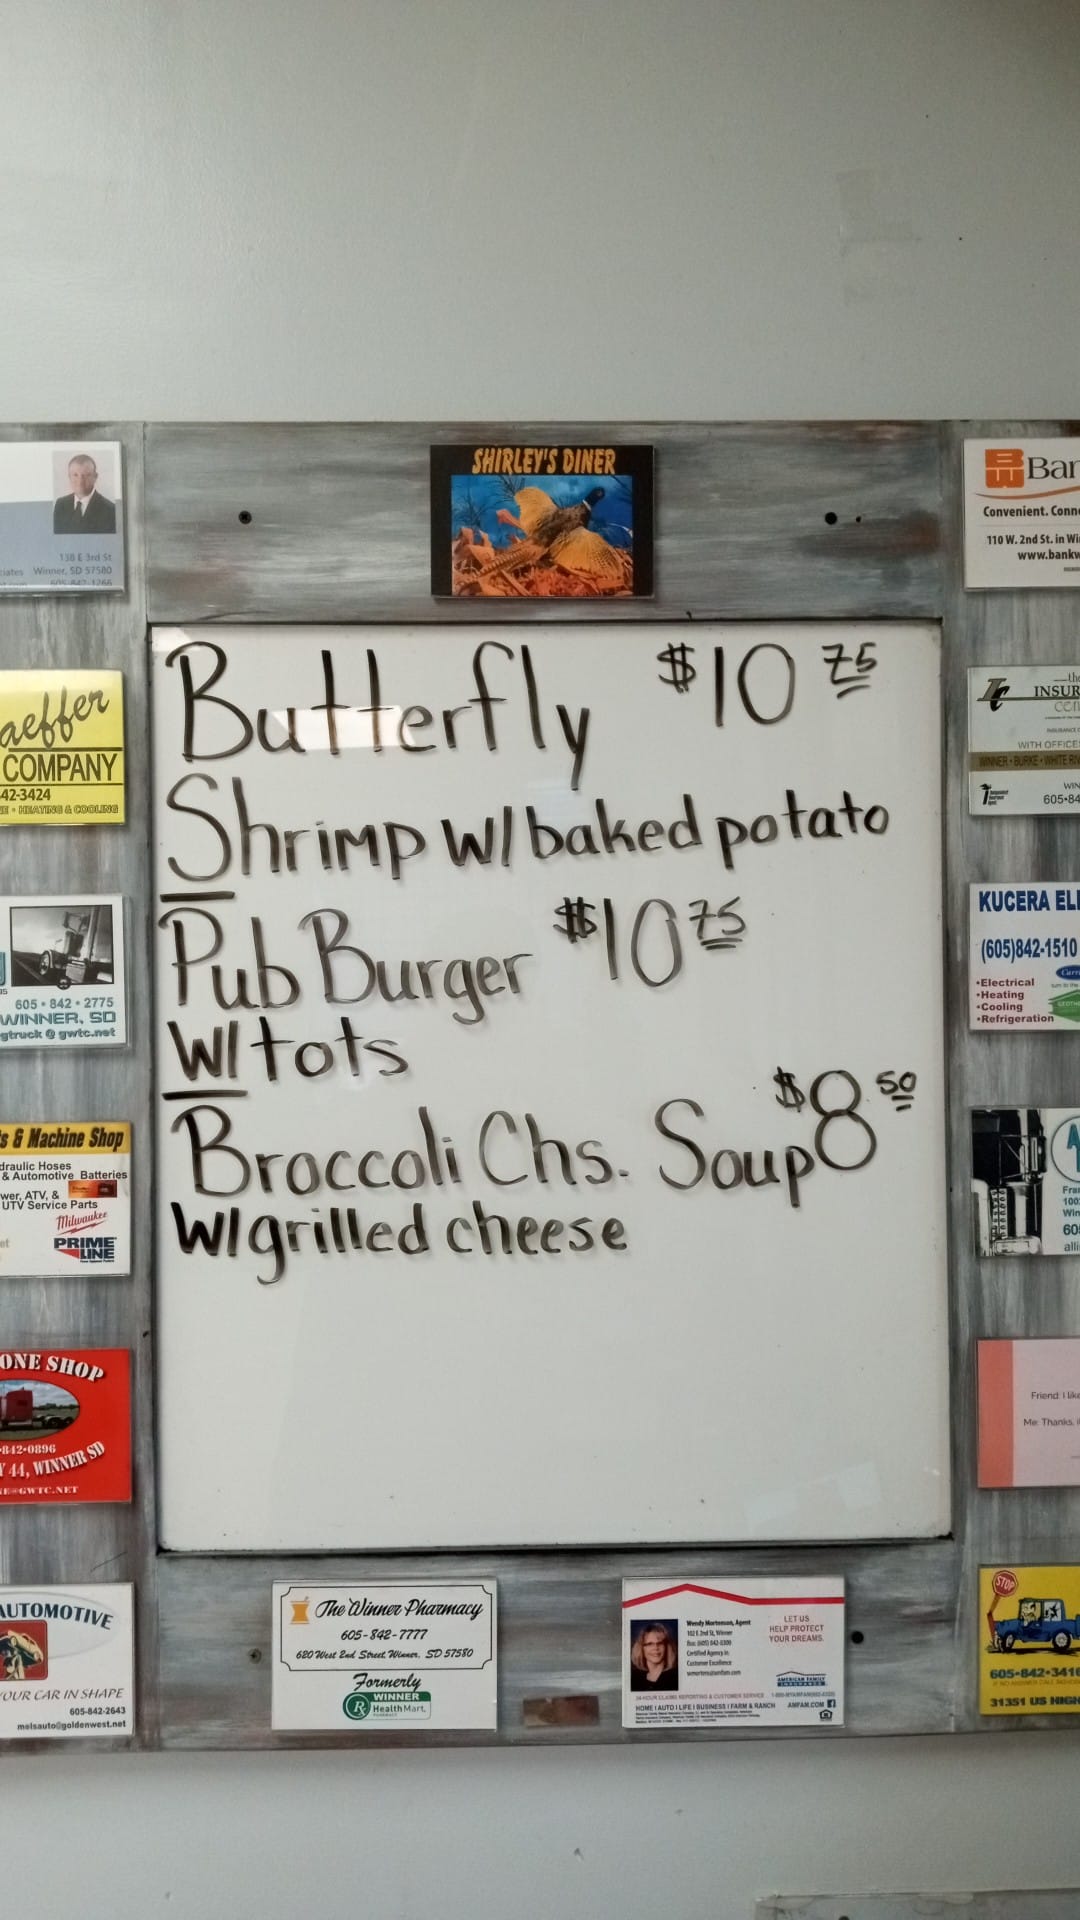 SHIRLEY'S DINER
Butterfly $10 75
Shrimp W/ baked potato
Pub Burger $10 75
W/ tots
Broccoli Chs. Soup $8 50
W/ grilled cheese
138 E 3rd St
Winner, SD 57580
605-842-1266
aeffer
COMPANY
42-3424
HEATING & COOLING
605 • 842 • 2775
WINNER, SD
gtruck @ gwtc.net
s & Machine Shop
draulic Hoses
& Automotive Batteries
wer, ATV, &
UTV Service Parts
Milwaukee
PRIME
LINE
ONE SHOP
842•0896
Y 44, WINNER SD
E@GWTC.NET
AUTOMOTIVE
YOUR CAR IN SHAPE
605-842-2643
melsauto@goldenwest.net
The Winner Pharmacy
605-842-7777
620 West 2nd Street, Winner, SD 57580
Formerly
WINNER
Health Mart.
PHARMACY
Wendy Mortenson, Agent
102 E 2nd St, Winner
Bus: (605) 842-0300
Certified Agency in
Customer Excellence
wmortens@amfam.com
LET US
HELP PROTECT
YOUR DREAMS.
AMERICAN FAMILY
INSURANCE
24-HOUR CLAIMS REPORTING & CUSTOMER SERVICE
HOME | AUTO | LIFE | BUSINESS | FARM & RANCH
AMFAM.COM
BW
Ban
Convenient. Conne
110 W. 2nd St. in Wi
www.bankw
the
INSUR
WITH OFFICE
WINNER • BURKE • WHITE RIV
WIN
605-84
KUCERA ELE
(605)842-1510
•Electrical
•Heating
•Cooling
•Refrigeration
Carri
Fra
100
Win
60
alli
Friend: I like
Me: Thanks, i
STOP
605•842•3416
31351 US HIGH